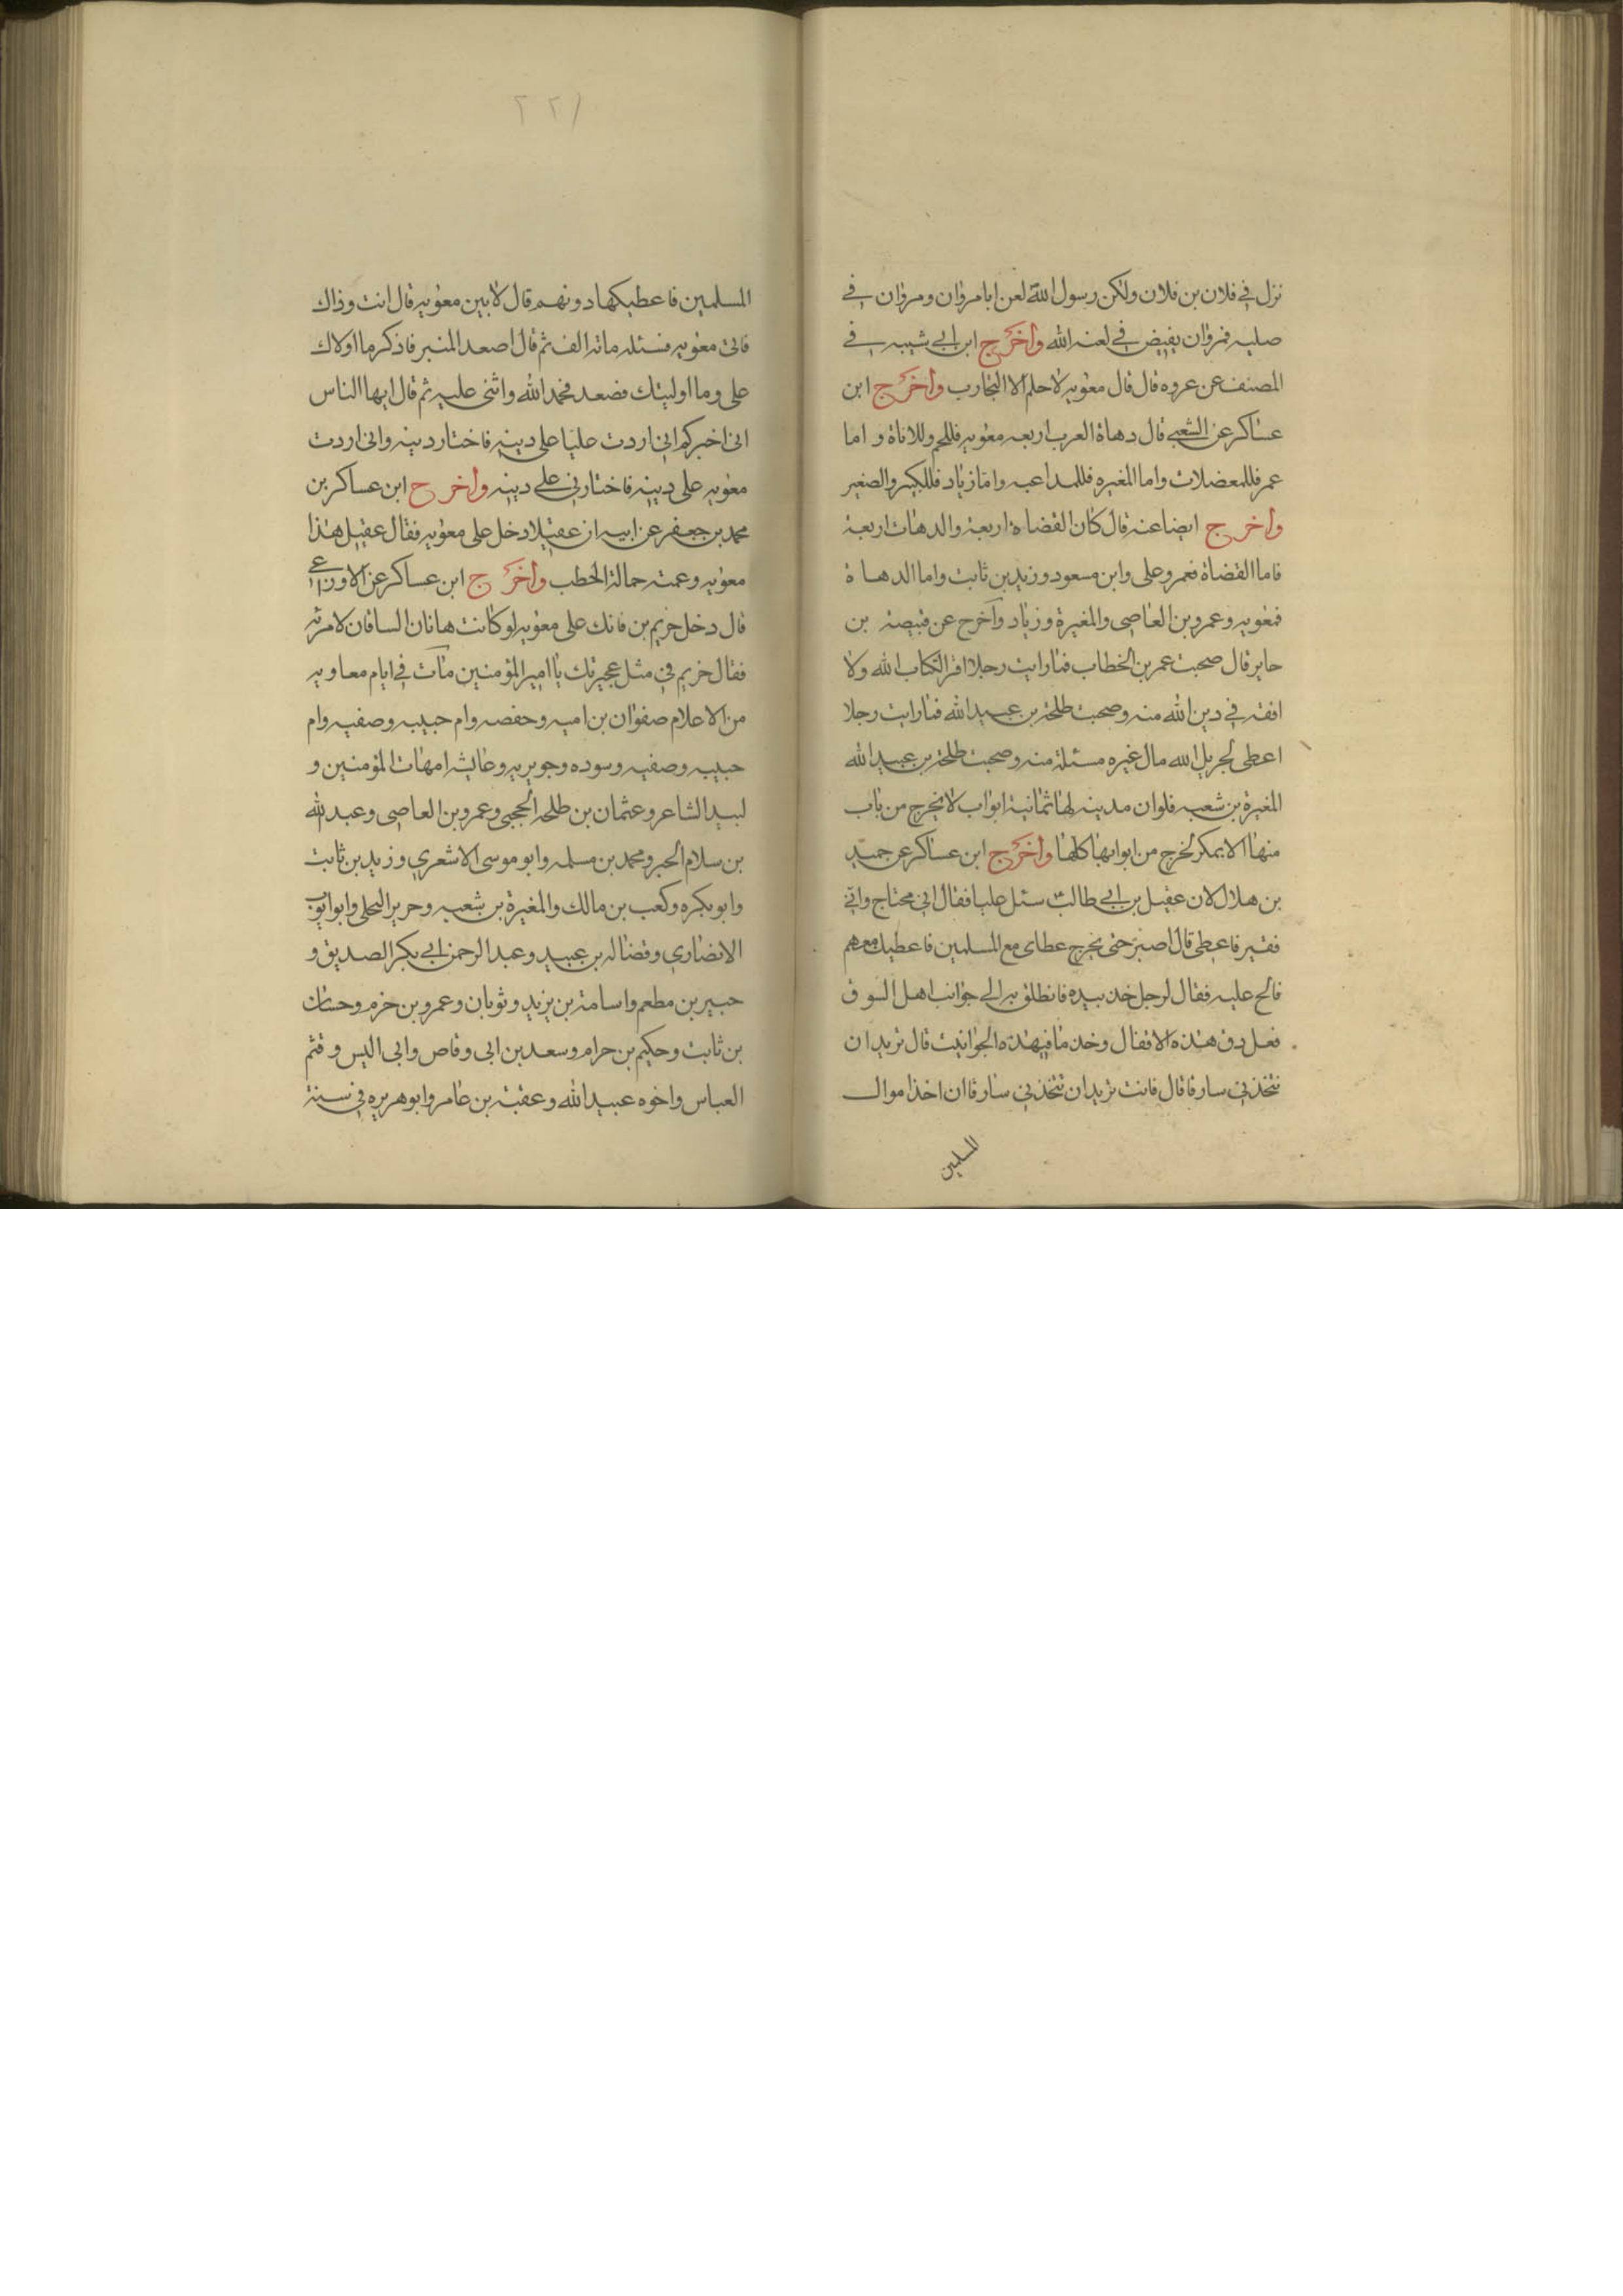 نزل في فلان بن فلان ولكن رسول الله لعن ابا مروان ومروان في
صلبه فمروان يفيض في لعنه الله واخرج ابن ابي شيبه في
المصنف عن عروه قال قال معويه لا حلم الا التجارب واخرج ابن
عساكر عن الشعبي قال دهاة العرب اربعه معويه فللحم وللاناة و اما
عمر فللمعضلات واما المغيره فللمداعبه واما زياد فللكبير والصغير
واخرج ايضا عنه قال كان القضاة اربعة والدهات اربعة
فاما القضاة فعمر وعلى وابن مسعود وزيد بن ثابت واما الدهاة
فمعويه وعمرو بن العاصى والمغيرة وزياد واخرج عن قبيصة بن
جابر قال صحبت عمر بن الخطاب فما رايت رجلا اقرا لكتاب الله ولا
افقه في دين الله منه وصحبت طلحة بن عبيد الله فما رايت رجلا
اعطى لجزيل الله مال غيره مسئلة منه وصحبت طلحة بن عبيد الله
المغيرة بن شعبه فلو ان مدينه لها ثمانية ابواب لا يخرج من باب
منها الا بمكر لخرج من ابوابها كلها واخرج ابن عساكر عن حميد
بن هلال لان عقيل بن ابي طالب سئل عليا فقال اني محتاج واني
فقير فاعطى قال اصبر حتى يخرج عطاى مع المسلمين فاعطيك معهم
فالح عليه فقال لرجل خذ بيده فانطلق به الى جوانب اهل السوق
فعل دق هذه الاقفال وخذ ما في هذه الجوانيت قال تريد ان
تتخذني سارقا قال فانت تريد ان تتخذني سارقا ان اخذ اموال
المسلمين
٢٢١
المسلمين فاعطيكها دونهم قال لا بين معويه قال انت وذاك
فاتى معويه فسئله مائة الف ثم قال اصعد المنبر فاذكر ما اولاك
على وما اوليتك فصعد فحمد الله واثنى عليه ثم قال ايها الناس
انى اخبركم انى اردت عليا على دينه فاختار دينه وانى اردت
معويه على دينه فاختارني على دينه واخرج ابن عساكر بن
محمد بن جعفر عن ابيه ان عقيلا دخل على معويه فقال عقيل هذا
معويه وعمته حمالة الحطب واخرج ابن عساكر عن الاوزاعي
قال دخل خريم بن فاتك على معويه لو كانت هاتان الساقان لامرئه
فقال خريم في مثل عجيزتك يا امير المؤمنين مات في ايام معاويه
من الاعلام صفوان بن اميه وحفصه وام حبيبه وصفيه وام
حبيبه وصفيه وسوده وجويريه وعائشه امهات المؤمنين و
لبيد الشاعر وعثمان بن طلحه الحجبى وعمرو بن العاصى وعبد الله
بن سلام الحبر ومحمد بن مسلمه وابو موسى الاشعري وزيد بن ثابت
وابو بكره وكعب بن مالك والمغيرة بن شعبه وجرير البجلى وابو ايوب
الانصاري وفضاله بن عبيد وعبد الرحمن ابي بكر الصديق و
جبير بن مطعم واسامة بن يزيد وثوبان وعمرو بن حزم وحسان
بن ثابت وحكيم بن حرام وسعد بن ابى وقاص وابى اليس وقثم
العباس واخوه عبيد الله وعقبة بن عامر وابو هريره في سنة